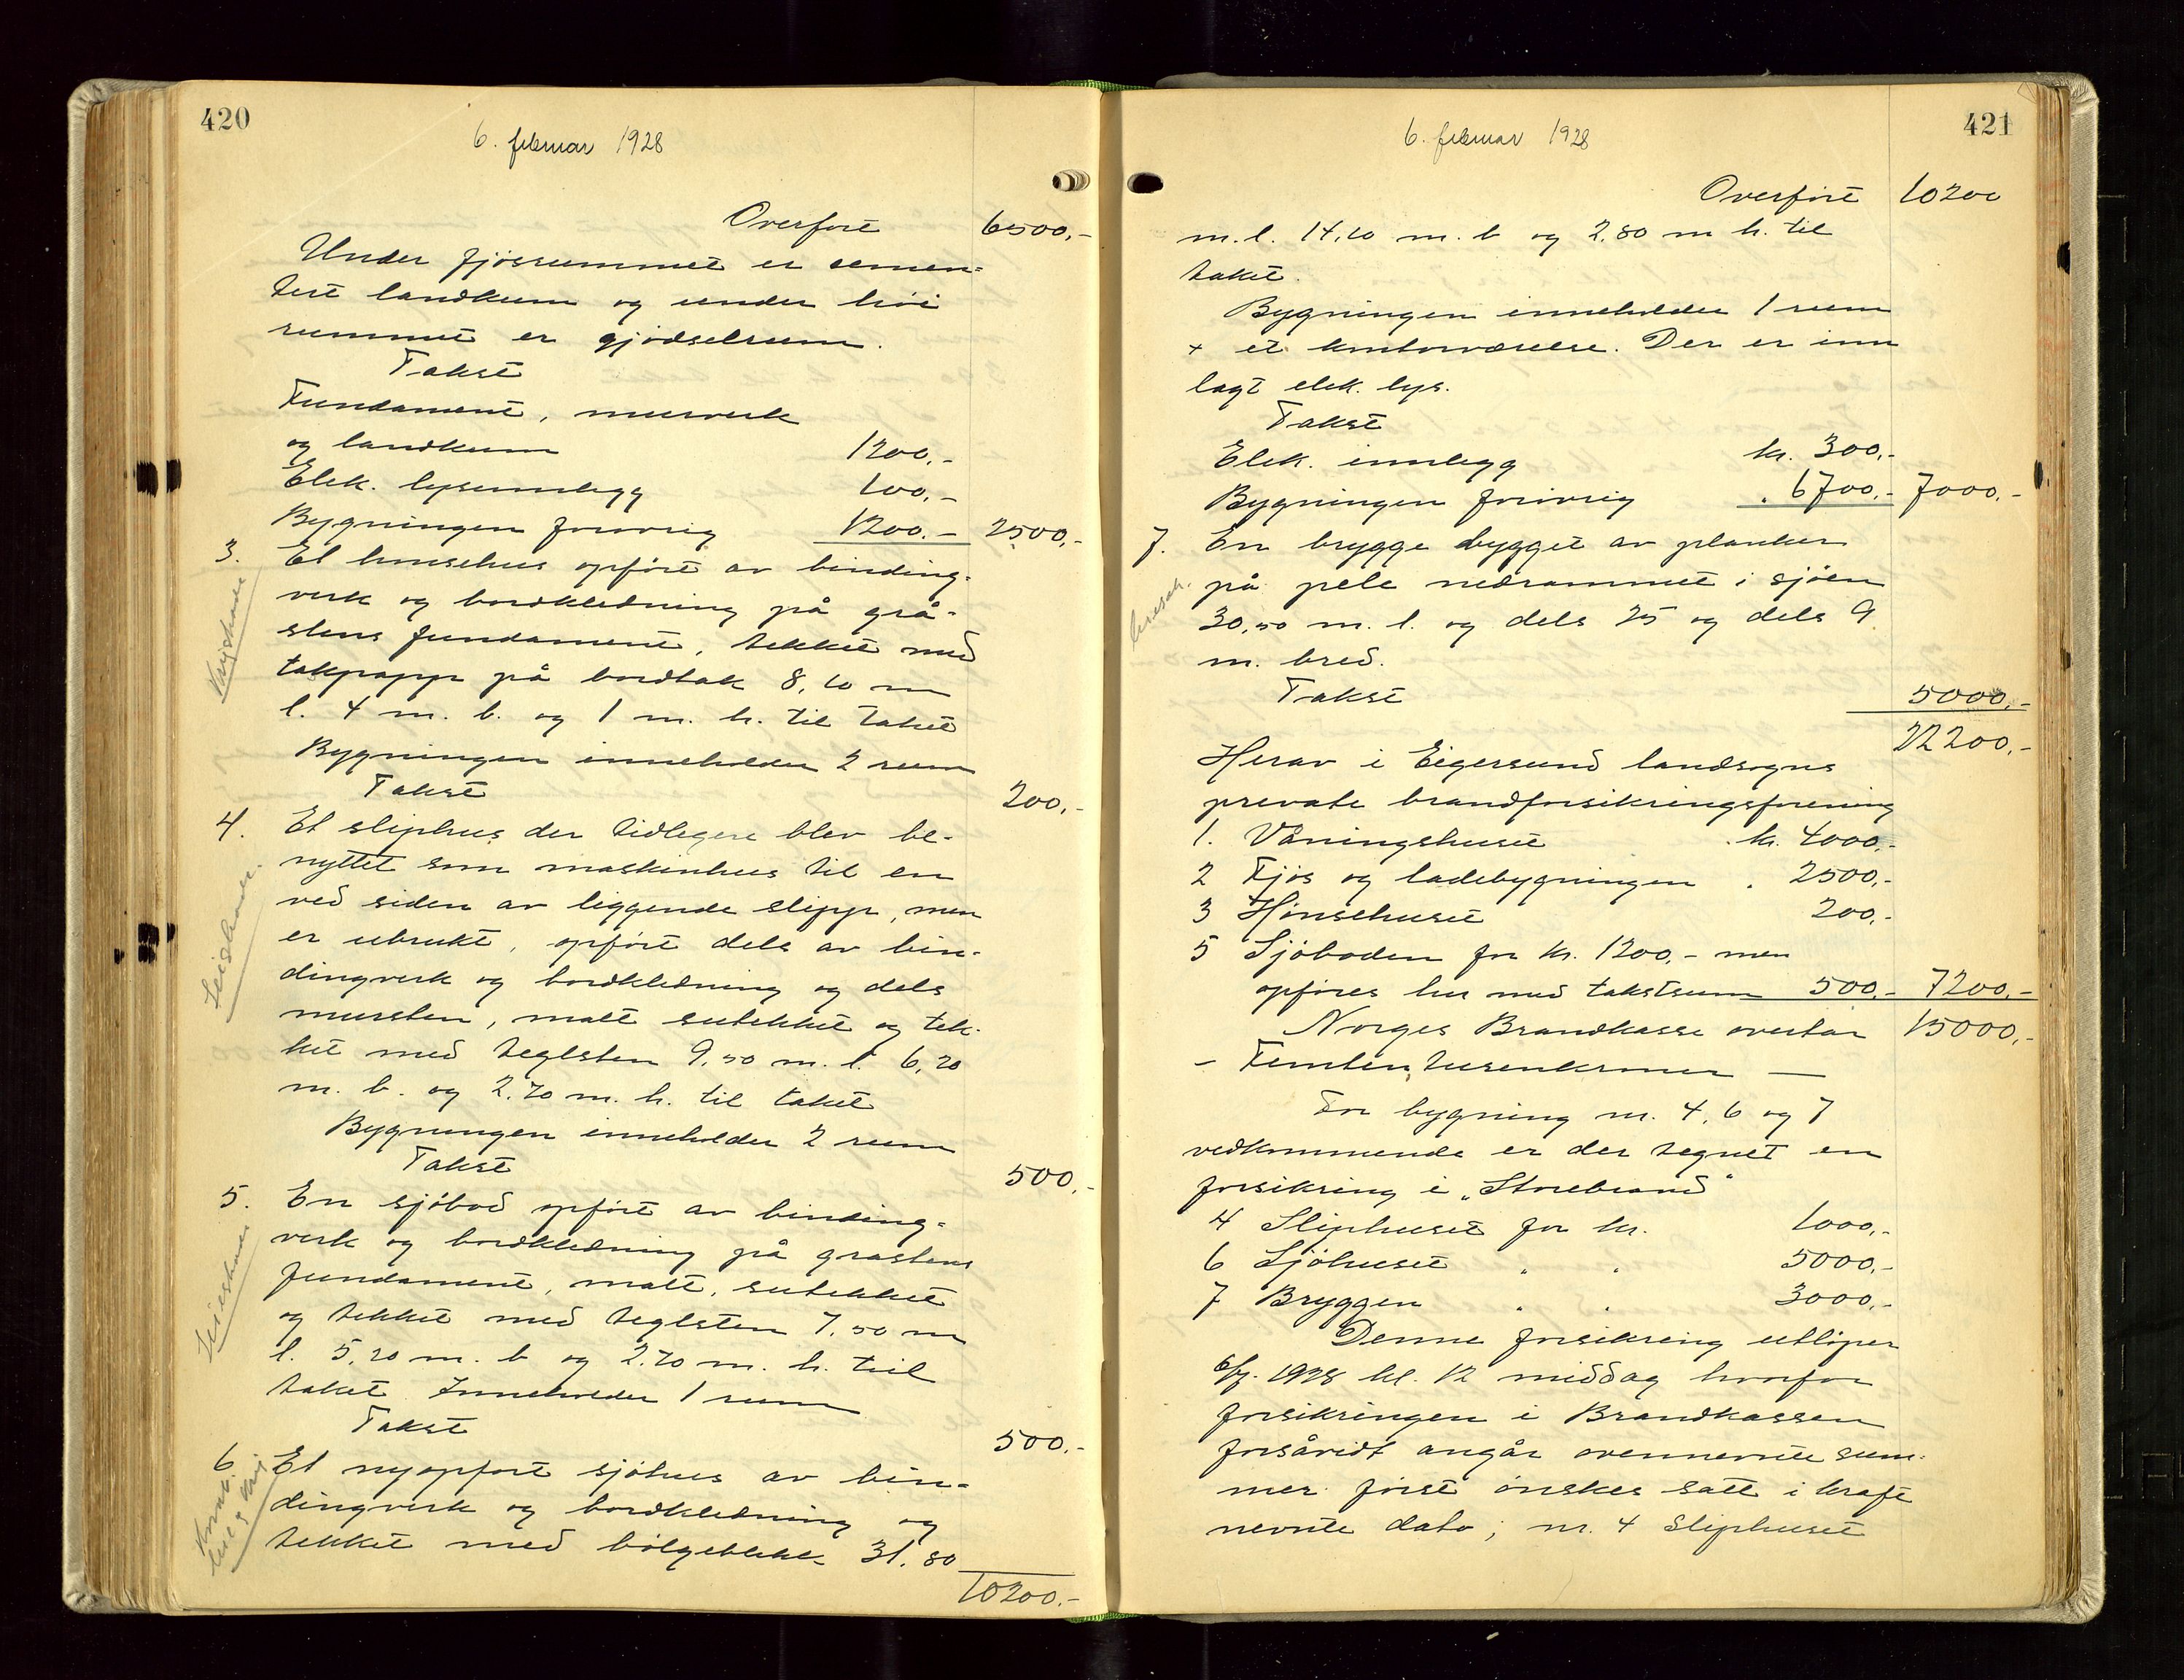 420
6. februar 1928
Overført 6500,-
Under fjøsrummet er semen-
tert landkum og under høi
rummet er gjødselrum.
Takst
Fundament, murverk
og landkum 1200,-
Elek. lysinnlegg 100,-
Bygningen forøvrig 1200.- 2500,-
3. Et hønsehus opført av binding-
verk og bordklædning på grå-
stens fundament, tekket med
takpapp på bordtak 8,10 m
l. 4 m. b. og 1 m. h. til taket
Bygningen inneholder 2 rum
Takst 200,-
4. Et sliphus der tidligere blev be-
nyttet som maskinhus til en
ved siden av liggende slipp, men
er ubrukt, opført dels av bin-
dingverk og bordklædning og dels
mursten, malt sutekket og tek-
ket med teglsten 9,50 m. l. 6,20
m. b. og 2,70 m. h. til taket
Bygningen inneholder 2 rum
Takst 500,-
5. En sjøbod opført av binding-
verk og bordklædning på gråstens
fundament, malt, sutekket
og tekket med teglsten 7,50 m
l. 5,20 m. b og 2,70 m. h. til
taket Inneholder 1 rum
Takst 500.-
6 Et nyopført sjøhus av bin-
dingverk og bordklædning og
tekket med bølgeblikk 31,80
10200.-
421
6. februar 1928
Overført 10200
m. l. 14,10 m. b og 2,80 m h. til
taket.
Bygningen inneholder 1 rum
+ et kontorværelse. Der er inn
lagt elek. lys.
Takst
Elek. innlegg kr. 300,-
Bygningen forøvrig " 6700,- 7000,-
7. En brygge bygget av planker
på pele nedrammet i sjøen
30,50 m. l. og dels 25 og dels 9
m. bred.
Takst 5000,-
22200,-
Herav i Eigersund landsogns
private brandforsikringsforening
1. Våningshuset kr. 4000,-
2 Fjøs og ladebygningen " 2500,-
3 Hønsehuset 200,-
5 Sjøboden for kr. 1200,- men
opføres her med takstsum 500,- 7200,-
Norges Brandkasse overtar 15000,-
- Femten tusenkroner -
For bygning nr. 4, 6 og 7
vedkommende er der tegnet en
forsikring i "Storebrand"
4 Sliphuset for kr. 1000,-
6 Sjøhuset " " 5000,-
7 Bryggen " " 3000,-
Denne forsikring utløper
1928 kl. 12 middag hvorfor
forsikringen i Brandkassen
forsåvidt angår ovennevnte sum-
mer først ønskes satt i kraft
nevnte dato; nr. 4 Sliphuset